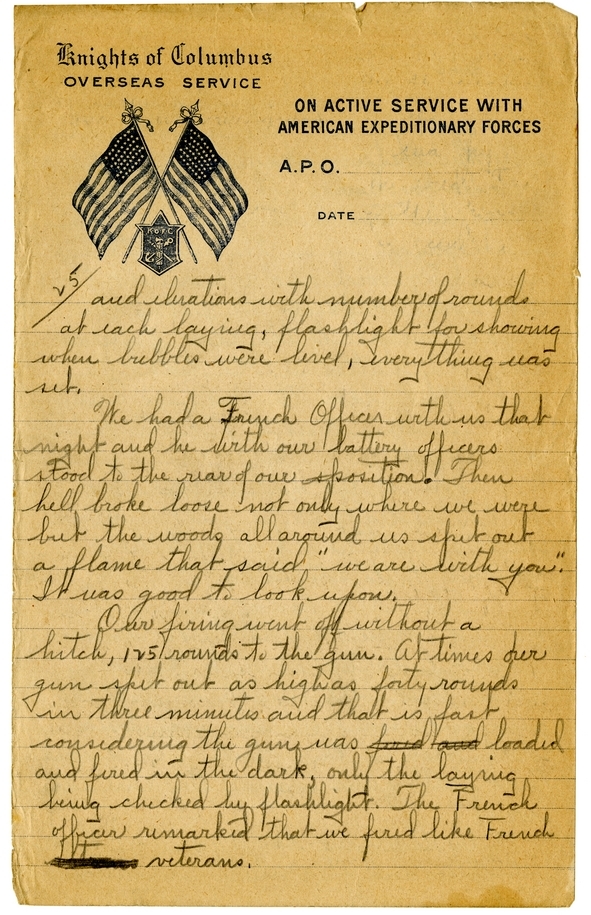 Knights of Columbus
OVERSEAS SERVICE
ON ACTIVE SERVICE WITH
AMERICAN EXPEDITIONARY FORCES
A.P.O.
DATE
K of C
25/
and elevations with number of rounds
at each laying, flashlight for showing
when bubbles were level, everything was
set.
We had a French Officer with us that
night and he with our battery officers
stood to the rear of our position. Then
hell broke loose not only where we were
but the woods all around us spit out
a flame that said "we are with you".
It was good to look upon.
Our firing went off without a
hitch, 125 rounds to the gun. At times our
gun spit out as high as forty rounds
in three minutes and that is fast
considering the gun was fired and loaded
and fired in the dark, only the laying
being checked by flashlight. The French
officer remarked that we fired like French
veterans.